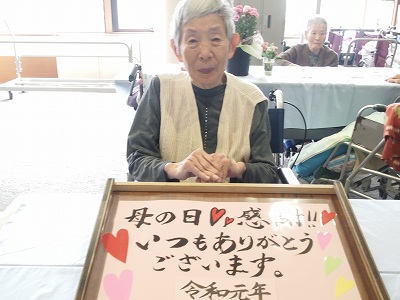 母の日感謝!!
いつもありがとう
ございます。
令和元年